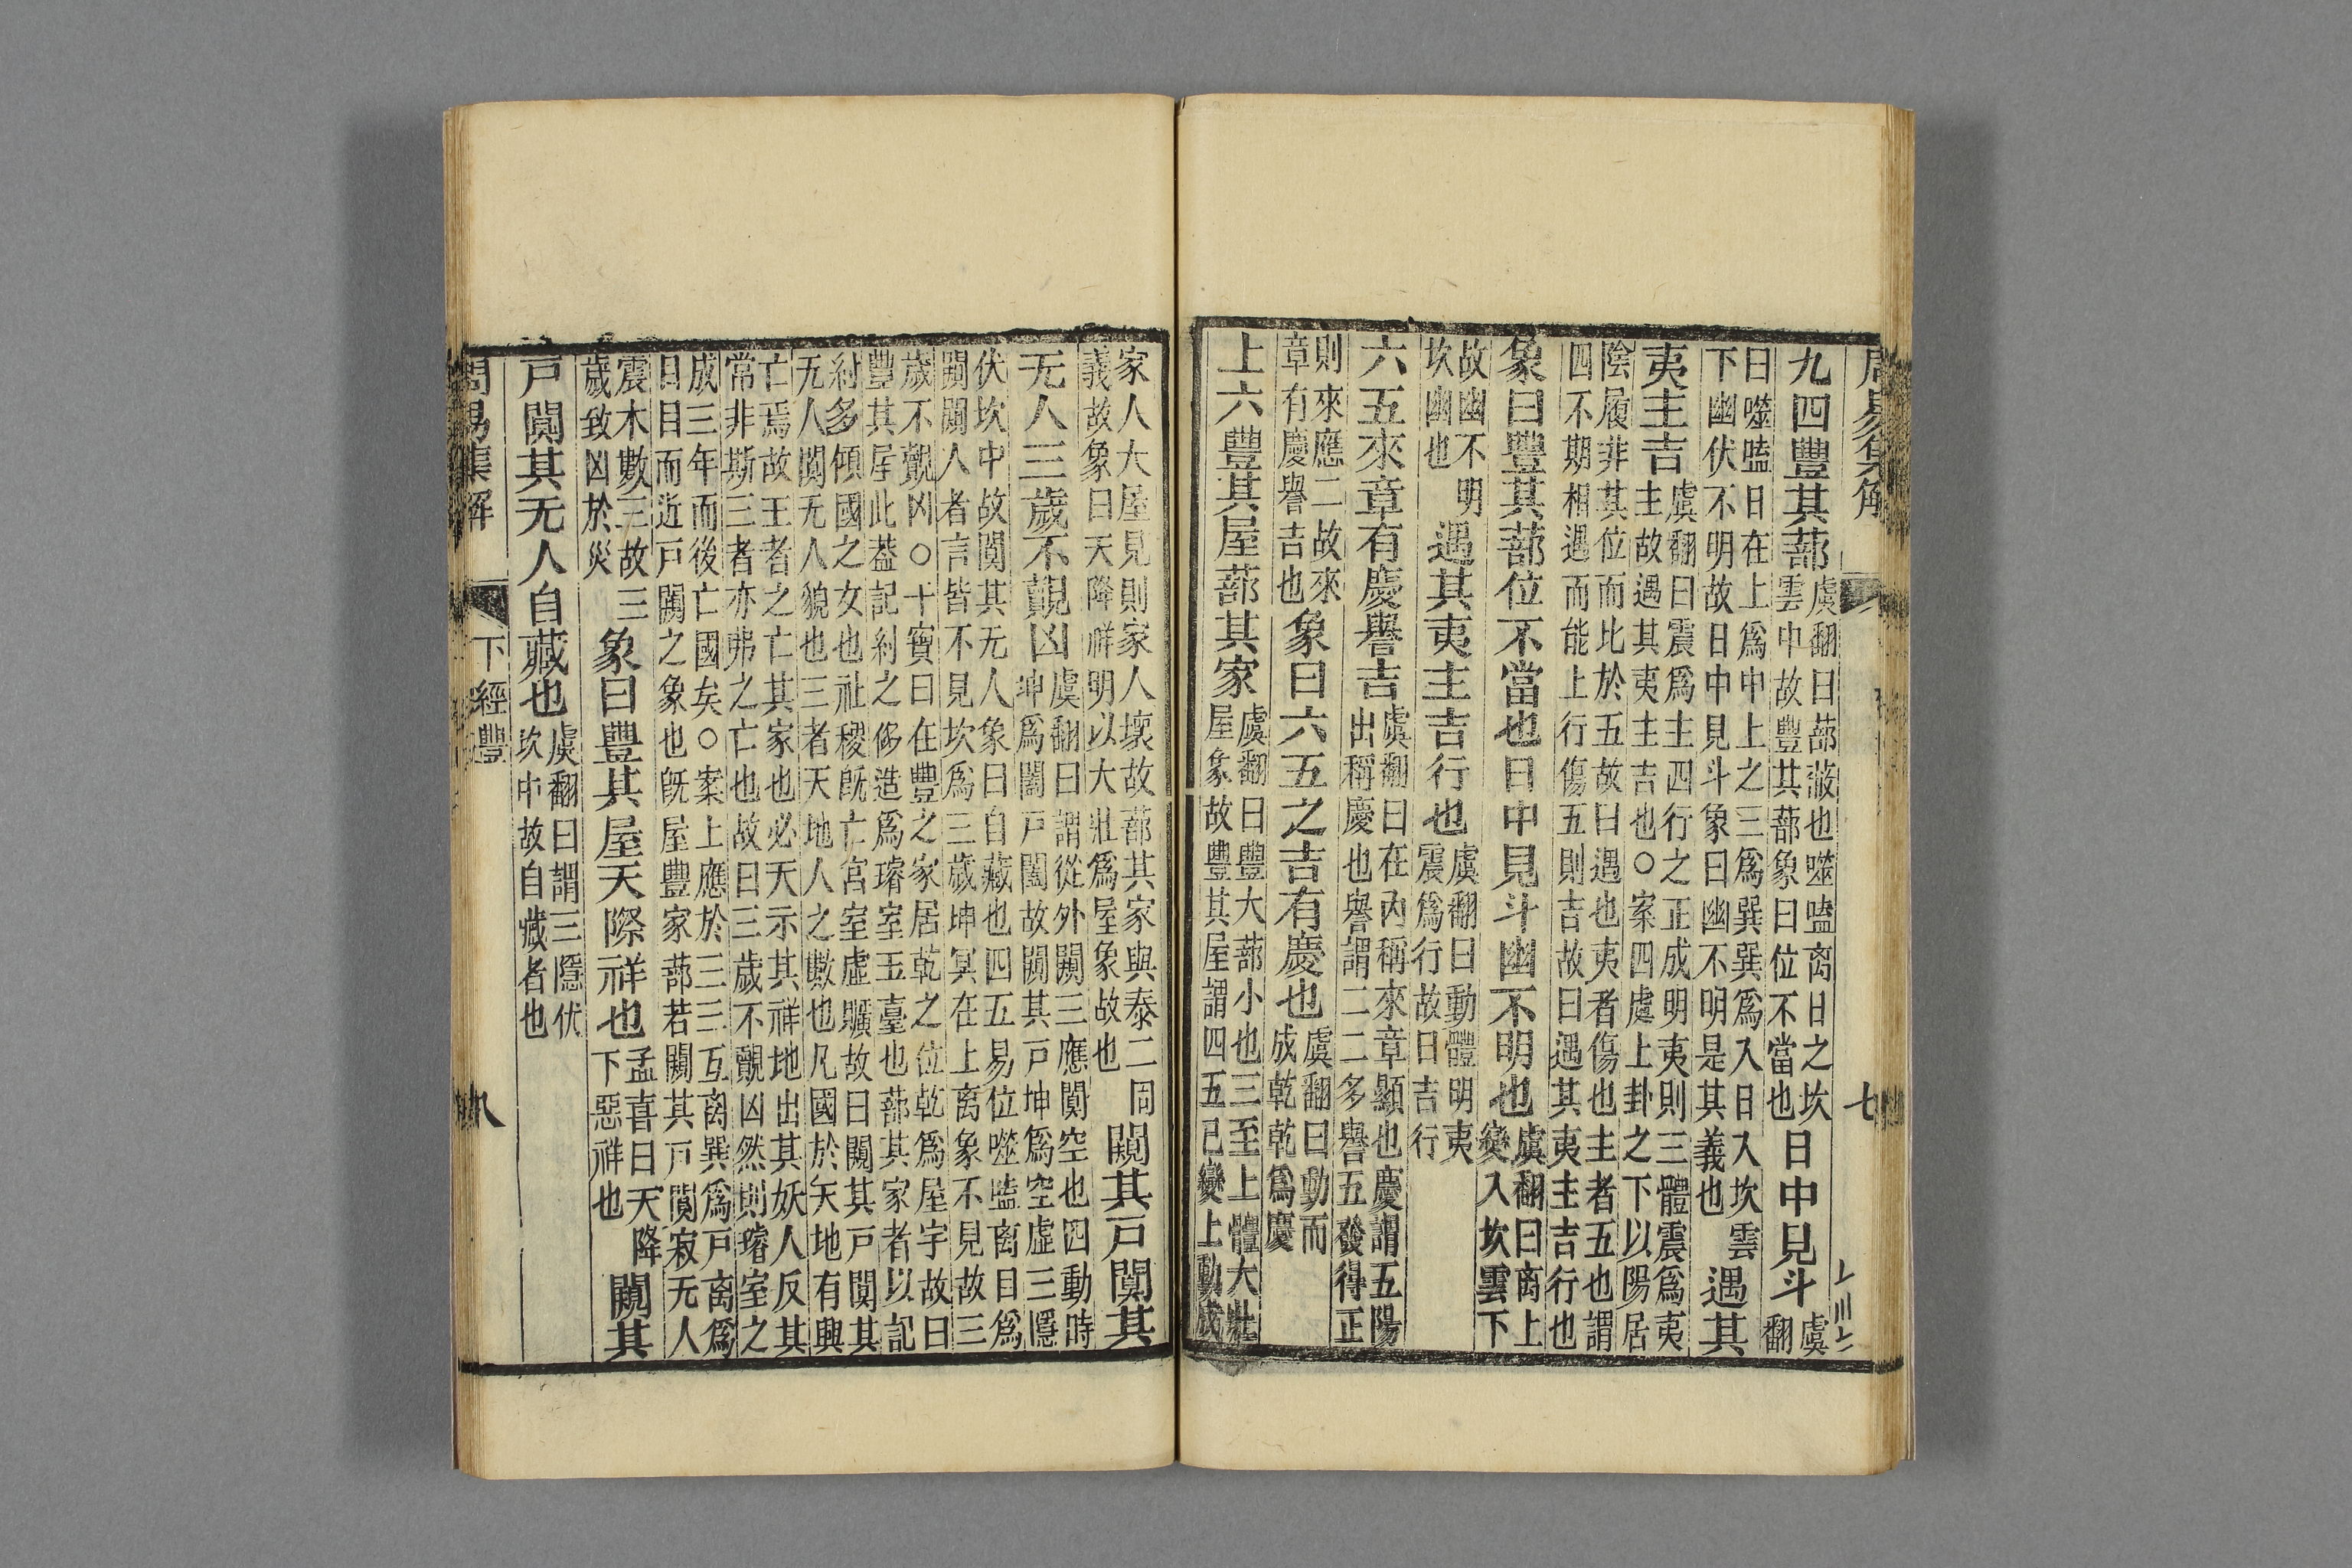 周易集解 七
九四豐其蔀
虞翻曰蔀蔽也噬嗑离日之坎
雲中故豐其蔀象曰位不當也
日中見斗
虞
翻
曰噬嗑日在上爲中上之三爲巽巽爲入日入坎雲
下幽伏不明故日中見斗象曰幽不明是其義也
遇其
夷主吉
虞翻曰震爲主四行之正成明夷則三體震爲夷
主故遇其夷主吉也○案四處上卦之下以陽居
陰履非其位而比於五故曰遇也夷者傷也主者五也謂
四不期相遇而能上行傷五則吉故曰遇其夷主吉行也
象曰豐其蔀位不當也日中見斗幽不明也
虞翻曰离上
變入坎雲下
故幽不明
坎幽也
遇其夷主吉行也
虞翻曰動體明夷
震爲行故曰吉行
六五來章有慶譽吉
虞翻曰在內稱來章顯也慶謂五陽
出稱慶也譽謂二二多譽五發得正
則來應二故來
章有慶譽吉也
象曰六五之吉有慶也
虞翻曰動而
成乾乾爲慶
上六豐其屋蔀其家
虞翻曰豐大蔀小也三至上體大壯
屋象故豐其屋謂四五已變上動成
家人大屋見則家人壞故蔀其家與泰二同
義故象曰天降祥明以大壯爲屋象故也
闚其戸闃其
无人三歲不覿凶
虞翻曰謂從外闚三應闃空也四動時
坤爲闔戸闔故闚其戸坤爲空虛三隱
伏坎中故闃其无人象曰自藏也四五易位噬嗑离目爲
闚闚人者言皆不見坎爲三歲坤冥在上离象不見故三
歲不覿凶○干寶曰在豐之家居乾之位乾爲屋宇故曰
豐其屋此葢記紂之侈造爲璿室玉臺也蔀其家者以記
紂多傾國之女也社稷旣亡宮室虛曠故曰闚其戸闃其
无人闃无人貌也三者天地人之數也凡國於天地有興
亡焉故王者之亡其家也必天示其祥地出其妖人反其
常非斯三者亦弗之亡也故曰三歲不覿凶然則璿室之
成三年而後亡國矣○案上應於三三互离巽爲戸离爲
日目而近戸闚之象也旣屋豐家蔀若闚其戸闃寂无人
震木數三故三
歲致凶於災
象曰豐其屋天際祥也
孟喜曰天降
下惡祥也
闚其
戸闃其无人自藏也
虞翻曰謂三隱伏
坎中故自藏者也
周易集解 下經豐 八